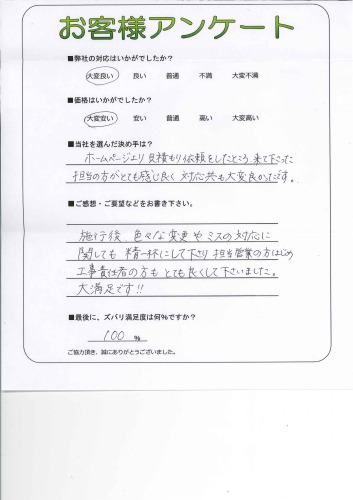 お客様アンケート
■弊社の対応はいかがでしたか？
大変良い 良い 普通 不満 大変不満
■価格はいかがでしたか？
大変安い 安い 普通 高い 大変高い
■当社を選んだ決め手は？
ホームページより見積もり依頼をしたところ 来て下さった
担当の方がとても感じ良く 対応共も大変良かったです。
■ご感想・ご要望などをお書き下さい。
施行後 色々な変更やミスの対応に
関しても 精一杯にして下さり 担当営業の方はじめ
工事責任者の方も とても良くして下さいました。
大満足です!!
■最後に、ズバリ満足度は何%ですか？
100 %
ご協力頂き、誠にありがとうございました。